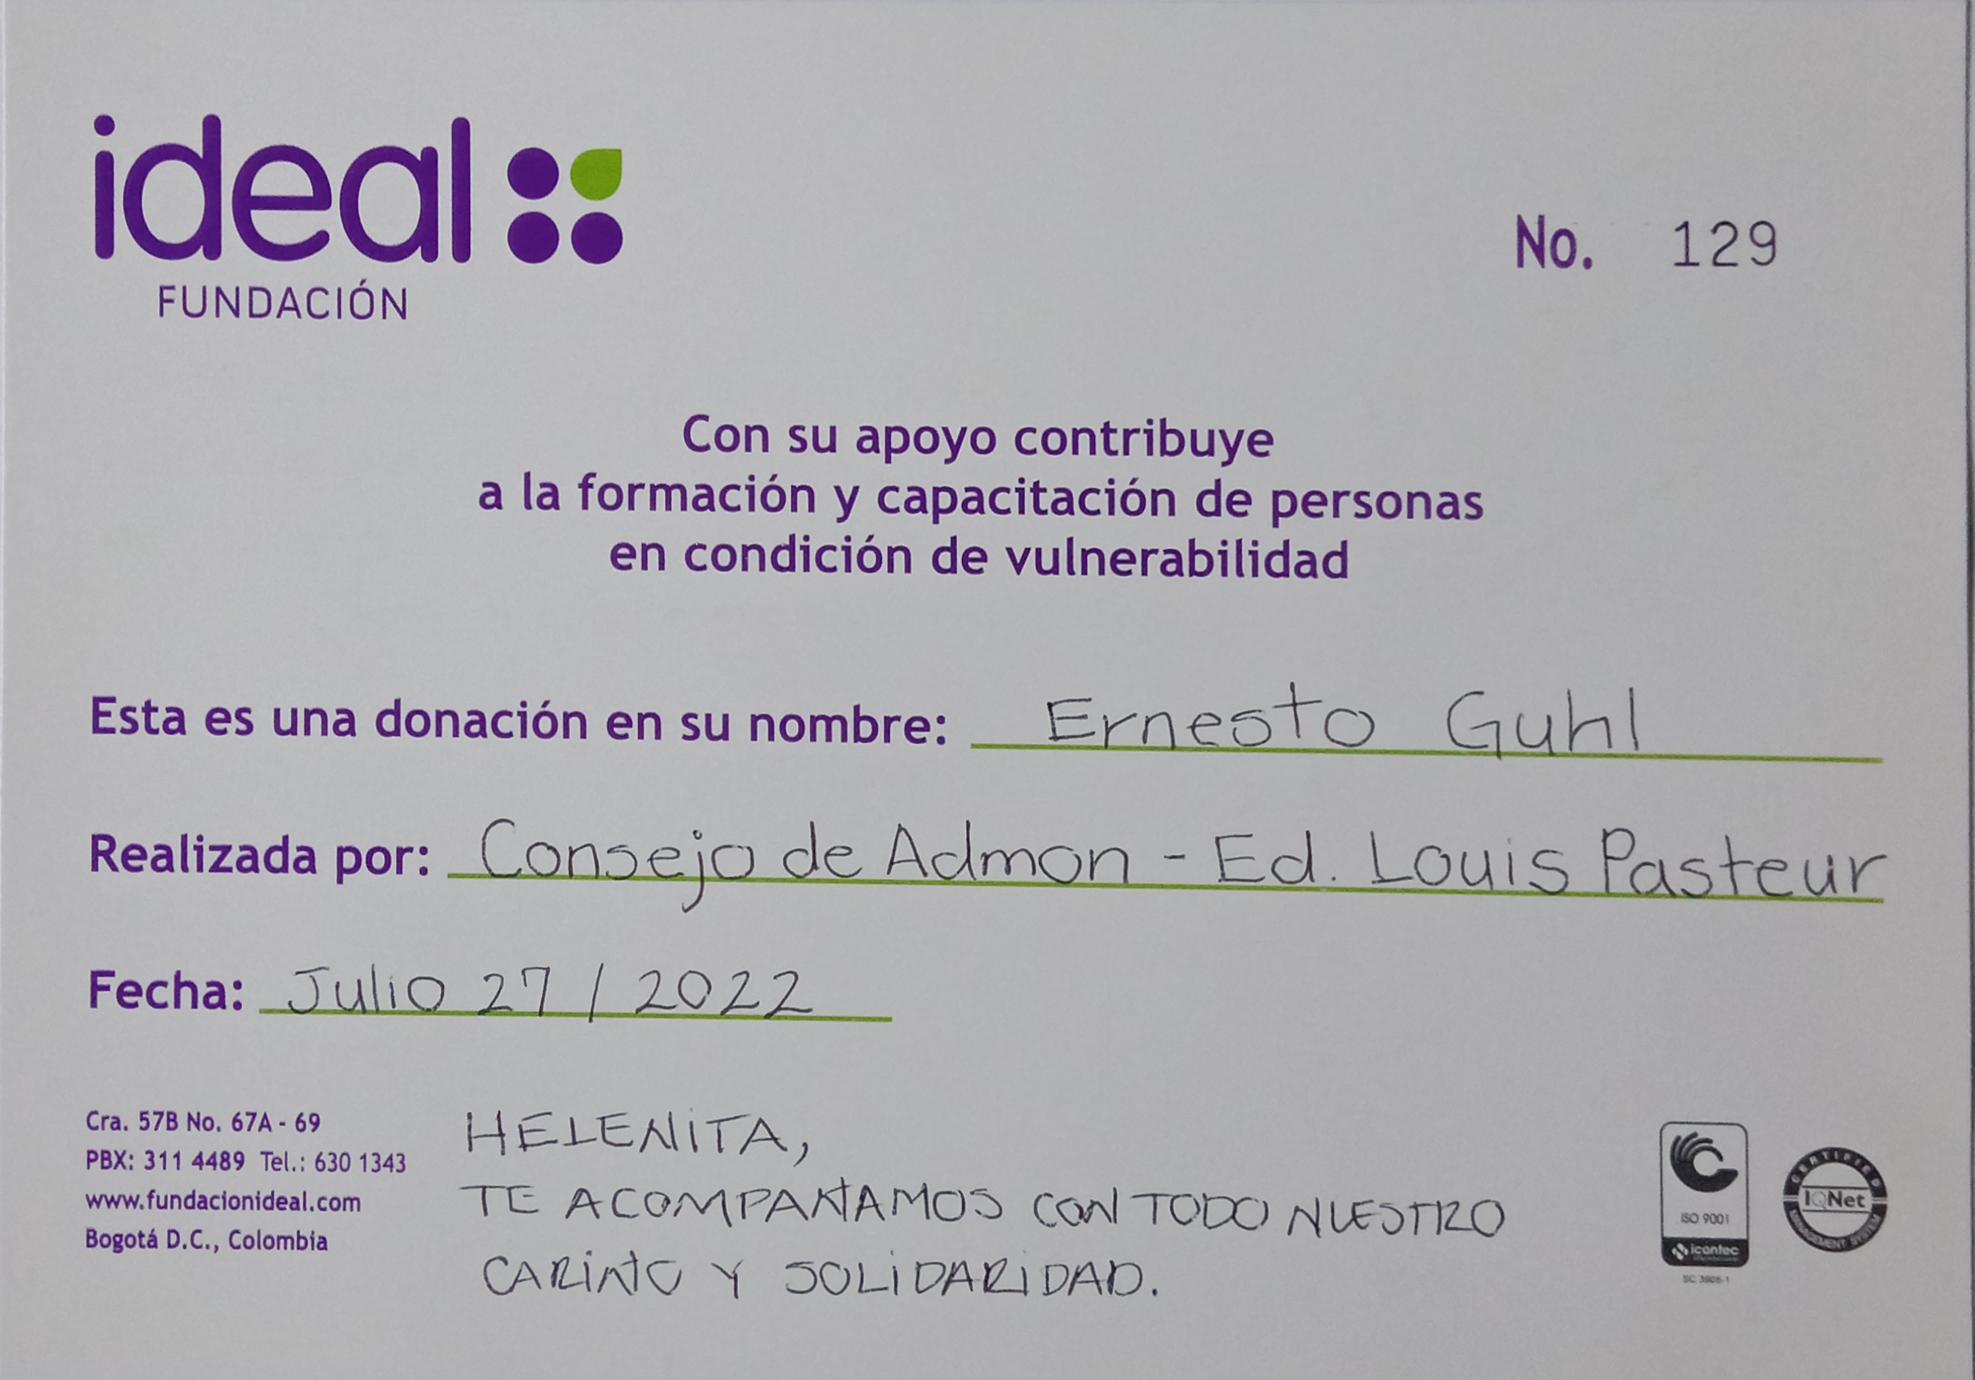 ideal
FUNDACIÓN
No. 129
Con su apoyo contribuye
a la formación y capacitación de personas
en condición de vulnerabilidad
Esta es una donación en su nombre: Ernesto Guhl
Realizada por: Consejo de Admon - Ed. Louis Pasteur
Fecha: Julio 27 / 2022
Cra. 57B No. 67A - 69
PBX: 311 4489 Tel.: 630 1343
www.fundacionideal.com
Bogotá D.C., Colombia
HELENITA,
TE ACOMPAÑAMOS CON TODO NUESTRO
CARIÑO Y SOLIDARIDAD.
ISO 9001
icontec
CERTIFIED
IQNet
MANAGEMENT SYSTEM